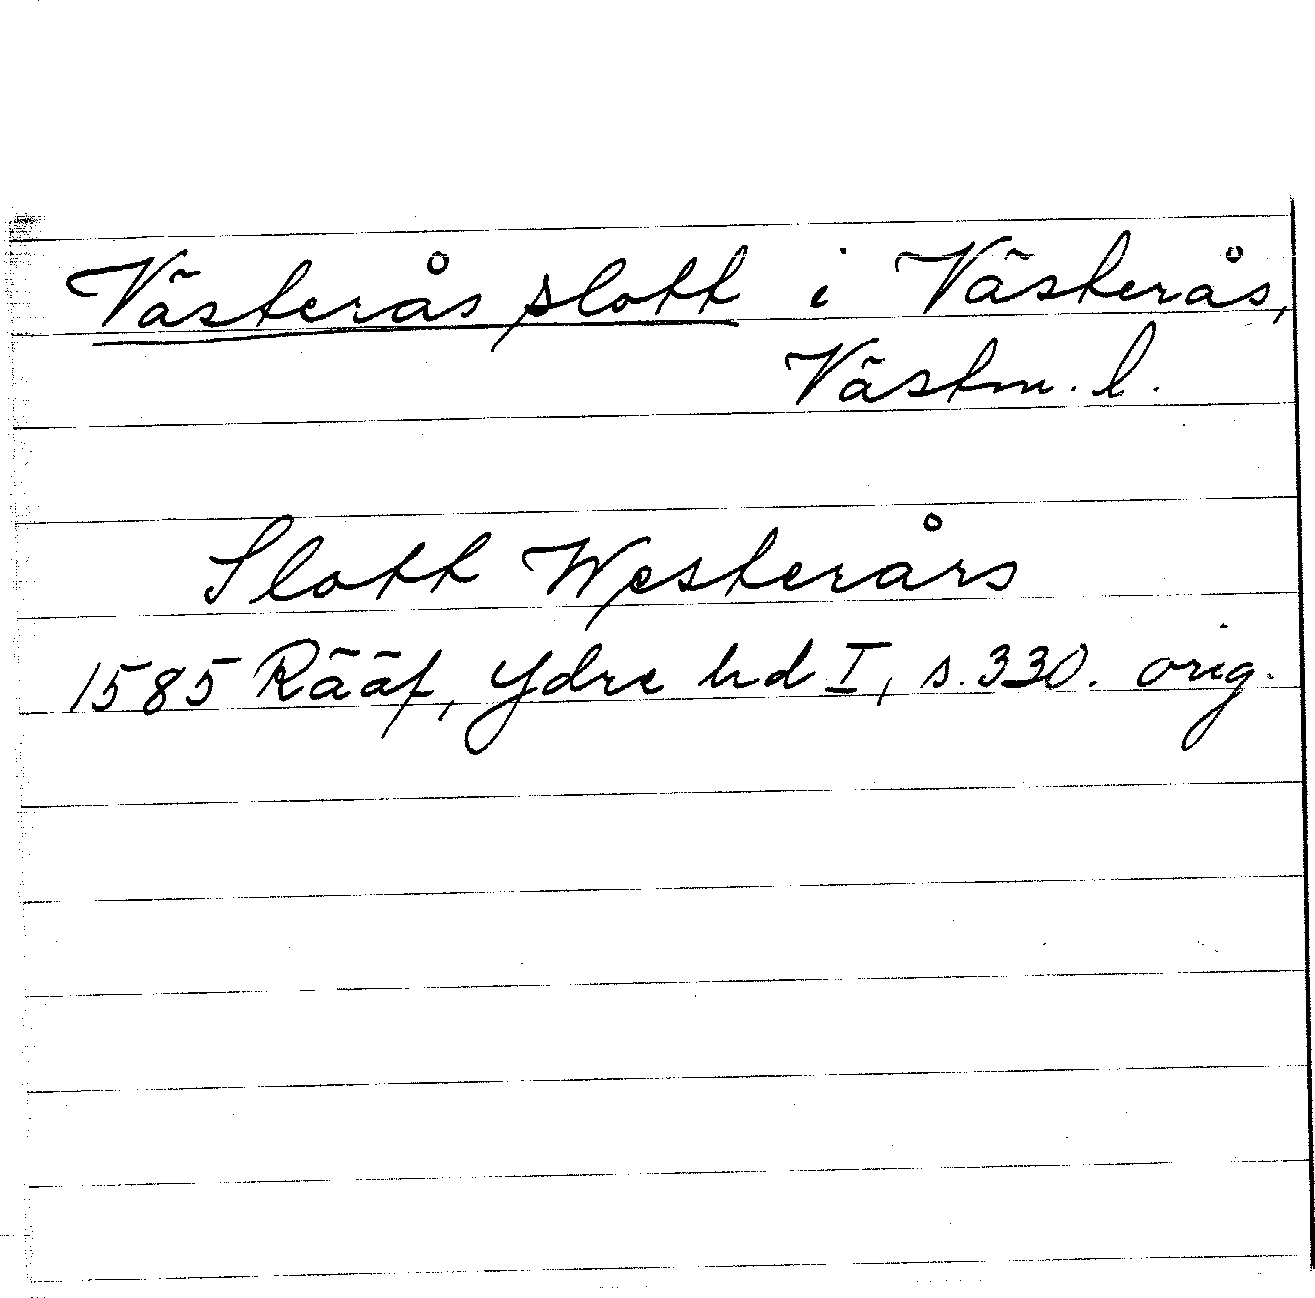 Västerås slott i Västerås,
Västm. l.
Slott Westerårs
1585 Rääf, Ydre hd I, s. 330. orig.